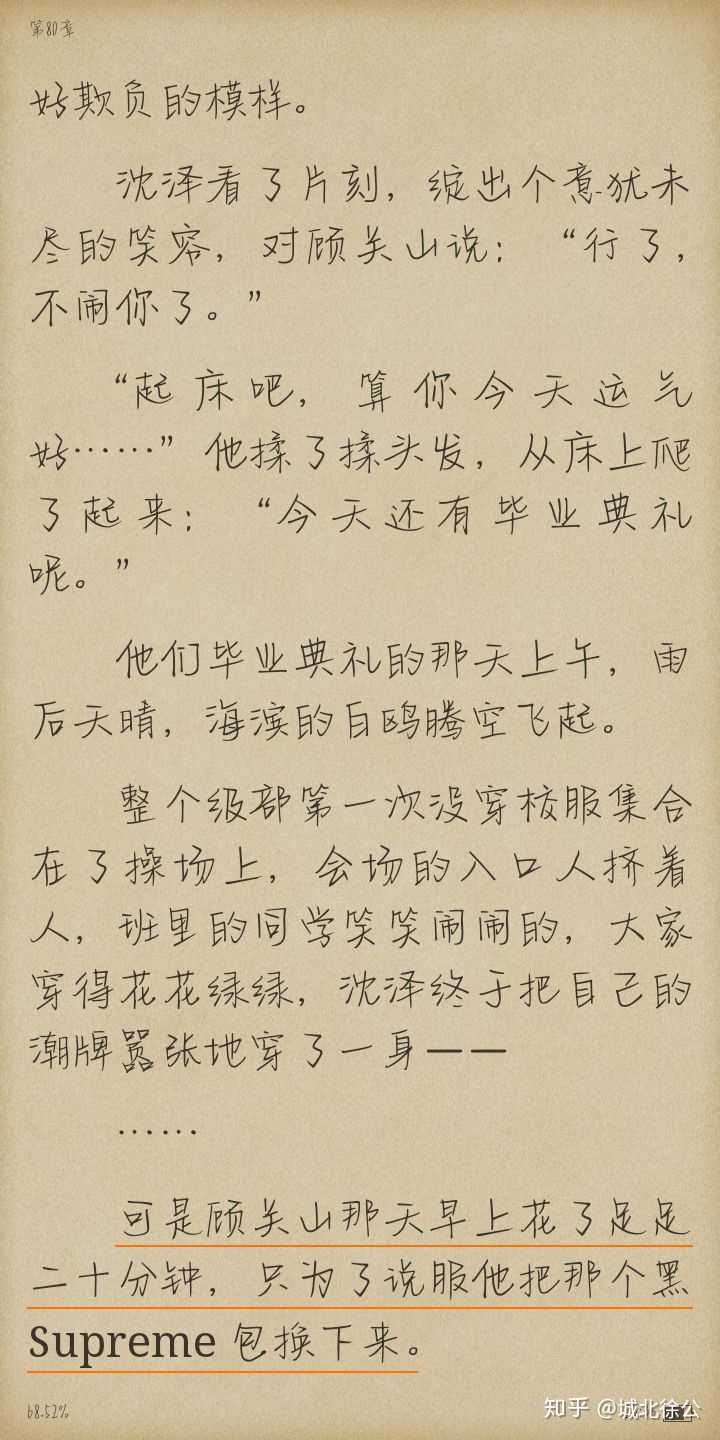 第80章
好欺负的模样。
沈泽看了片刻，绽出个意犹未
尽的笑容，对顾关山说：“行了，
不闹你了。”
“起床吧，算你今天运气
好……”他揉了揉头发，从床上爬
了起来：“今天还有毕业典礼
呢。”
他们毕业典礼的那天上午，雨
后天晴，海滨的白鸥腾空飞起。
整个级部第一次没穿校服集合
在了操场上，会场的入口人挤着
人，班里的同学笑笑闹闹的，大家
穿得花花绿绿，沈泽终于把自己的
潮牌嚣张地穿了一身——
……
可是顾关山那天早上花了足足
二十分钟，只为了说服他把那个黑
Supreme 包换下来。
68.52%
知乎 @城北徐公